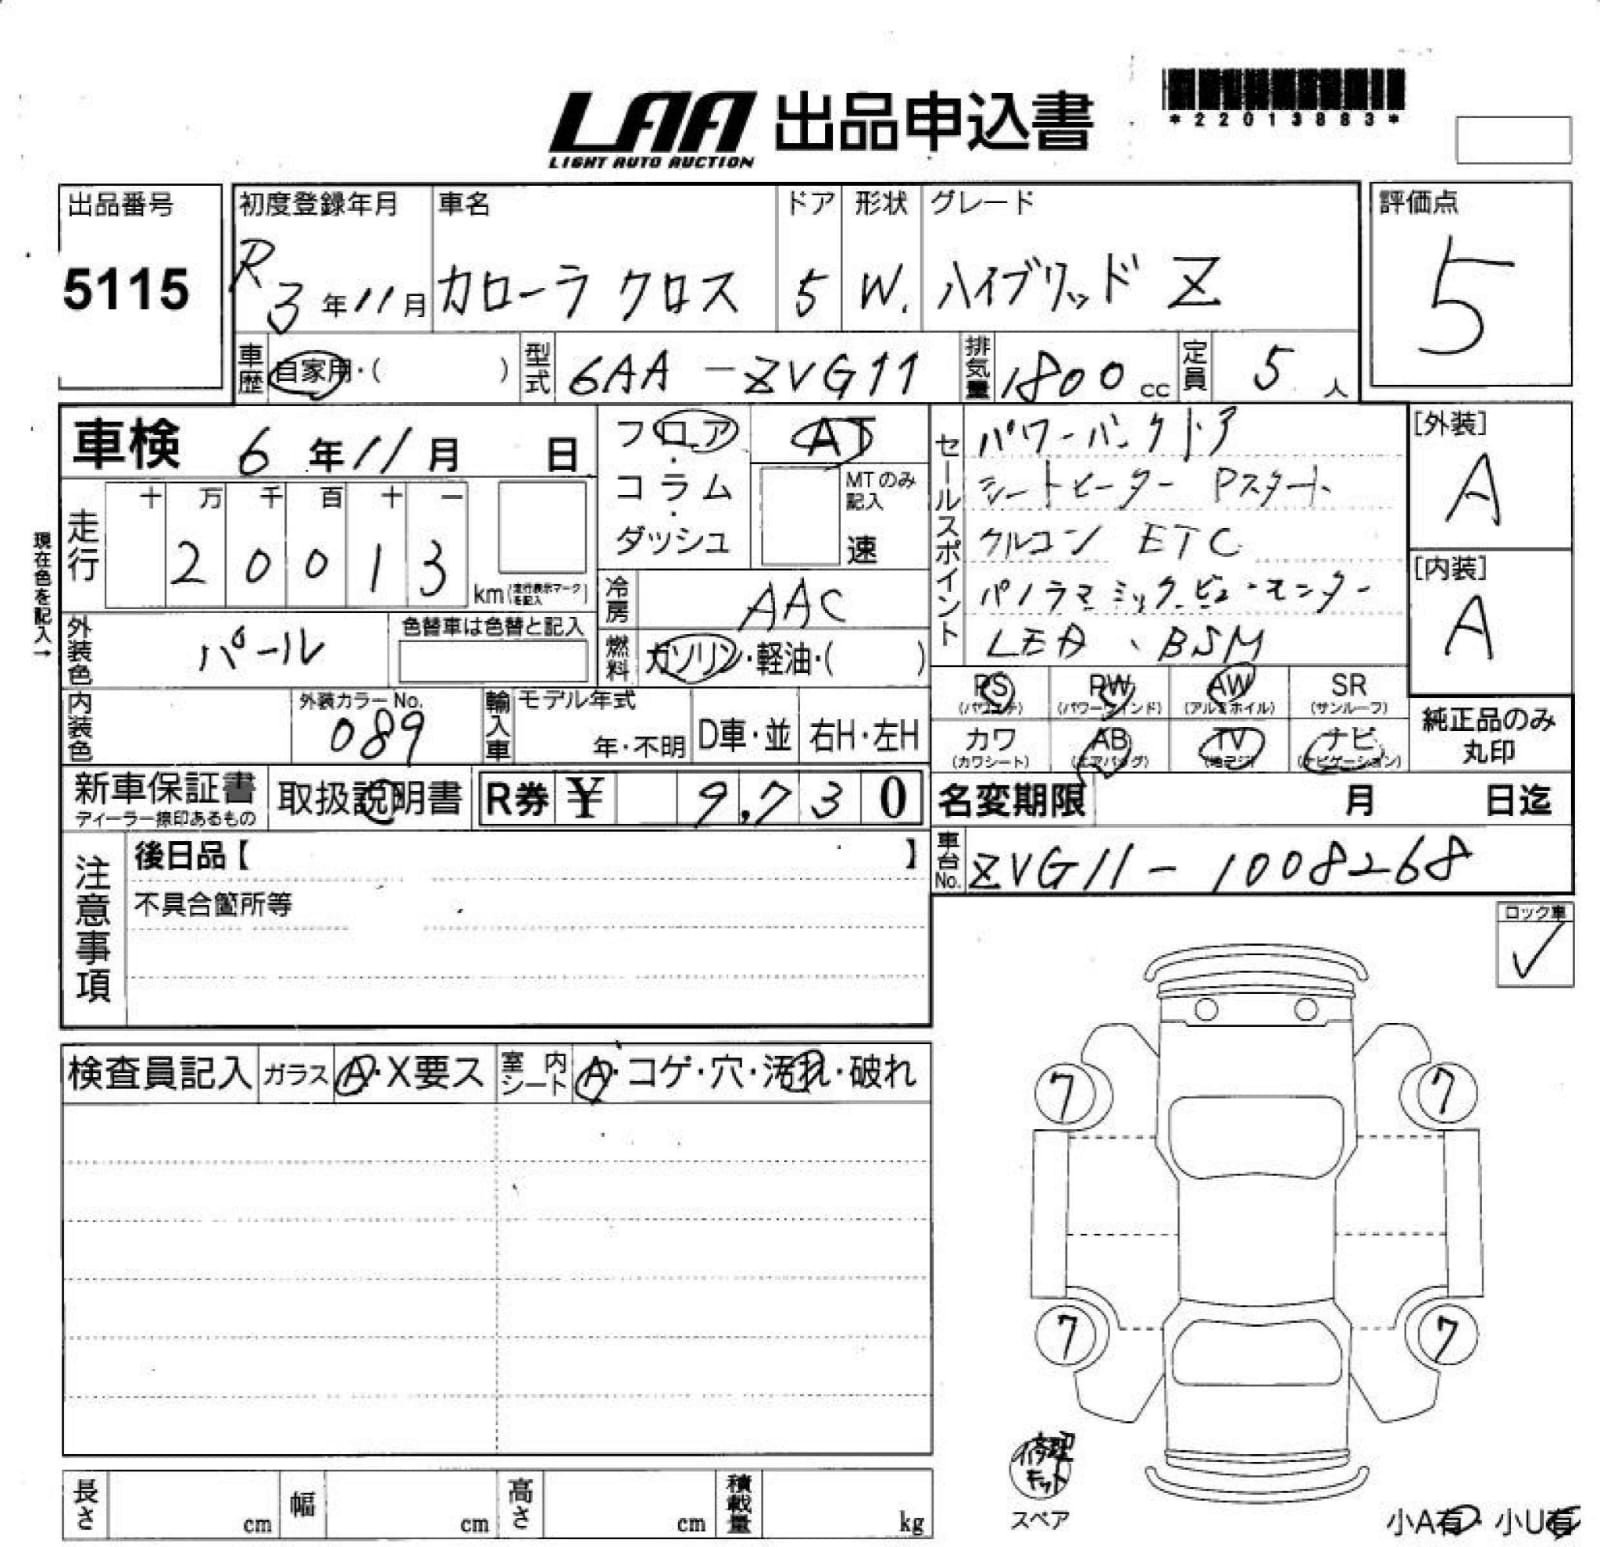 LAA 出品申込書
LIGHT AUTO AUCTION
*22013883*
出品番号
5115
初度登録年月
R3年11月
車名
カローラ クロス
ドア
5
形状
W.
グレード
ハイブリッド Z
評価点
5
車歴
自家用・( )
型式
6AA-ZVG11
排気量
1800 cc
定員
5 人
車検 6年11月 日
フロア・コラム・ダッシュ
AT
MTのみ記入
速
セールスポイント
パワーバックドア
シートヒーター Pスタート
クルコン ETC
パノラマミックビューモニター
LED、BSM
[外装]
A
[内装]
A
現在色を記入→
走行
十 万 千 百 十 一
2 0 0 1 3
km(走行表示マークを記入)
冷房
AAC
外装色
パール
色替車は色替と記入
燃料
ガソリン・軽油・( )
内装色
外装カラーNo.
089
輸入車
モデル年式
年・不明
D車・並
右H・左H
PS
(パワステ)
PW
(パワーウインド)
AW
(アルミホイル)
SR
(サンルーフ)
カワ
(カワシート)
AB
(エアバッグ)
TV
(地デジ)
ナビ
(ナビゲーション)
純正品のみ丸印
新車保証書
ディーラー捺印あるもの
取扱説明書
R券 ¥ 9,730
名変期限 月 日迄
車台No.
ZVG11-1008268
注意事項
後日品【 】
不具合箇所等
ロック車
✓
検査員記入
ガラス
A・X要ス
室内シート
A・コゲ・穴・汚れ・破れ
7
7
7
7
修理キット
スペア
長さ cm
幅 cm
高さ cm
積載量 kg
小A有・小U有